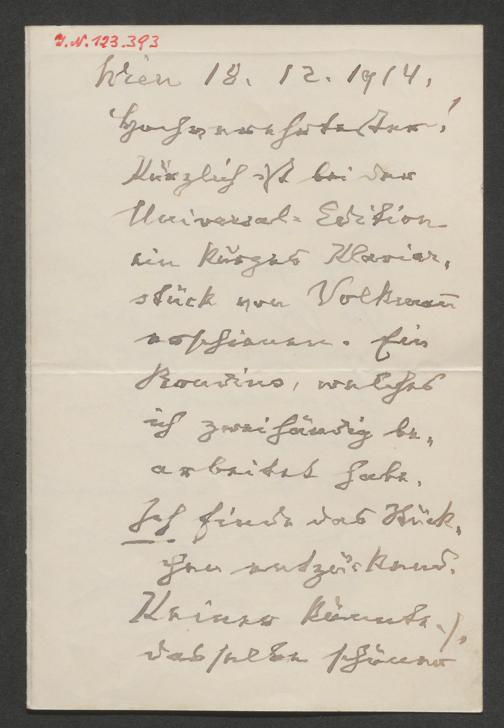 I.N. 123.393
Wien 18. 12. 1914.
Hochverehrtester!
Kürzlich ist bei der
Universal-Edition
ein kurzes Klavier,
stück von Volkmann
erschienen. Ein
Rondino, welches
ich zweihändig be,,
arbeitet habe.
Ich finde das Stück,
chen entzückend.
Keiner könnte
dasselbe schöner